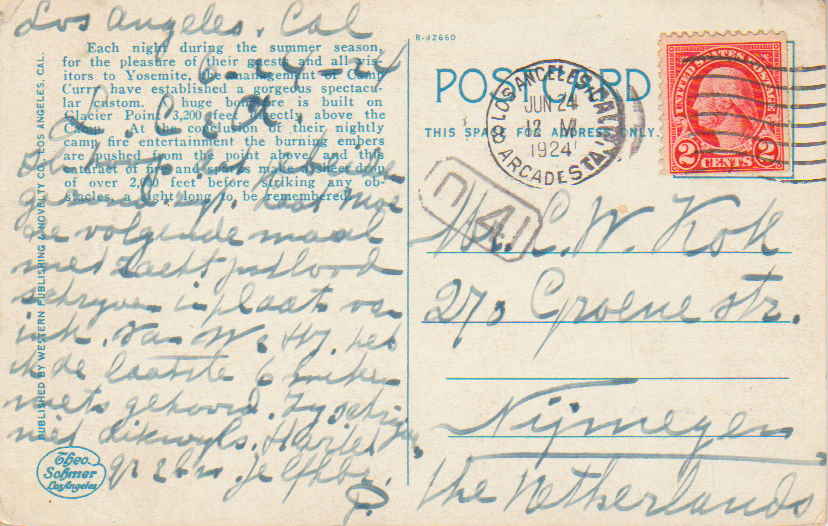 Los Angeles. Cal
6-24-24
L. C. & A.
Each night during the summer season,
for the pleasure of their guests and all vis-
itors to Yosemite, the management of Camp
Curry have established a gorgeous spectacu-
lar custom. A huge bonfire is built on
Glacier Point 3,200 feet directly above the
Camp. At the conclusion of their nightly
camp fire entertainment the burning embers
are pushed from the point above and this
cataract of fire and sparks make a sheer drop
of over 2,000 feet before striking any ob-
stacles, a sight long to be remembered.
de volgende maal
met zacht potlood
schryven in plaats van
ink. Van W. & Hy. heb
ik de laatste 6 weken
niets gehoord. Zy schryven
niet dikwyls. Hartel
gr
PUBLISHED BY WESTERN PUBLISHING & NOVELTY CO., LOS ANGELES, CAL.
Theo.
Sohmer
Los Angeles
R-42660
POST CARD
THIS SPACE FOR ADDRESS ONLY.
LOS ANGELES, CAL.
JUN 24
12 M
1924
ARCADE STA.
8
UNITED STATES POSTAGE
2 CENTS 2
n 41
Mr. C. W. Kok
273 Groene str.
Nijmegen
The Netherlands